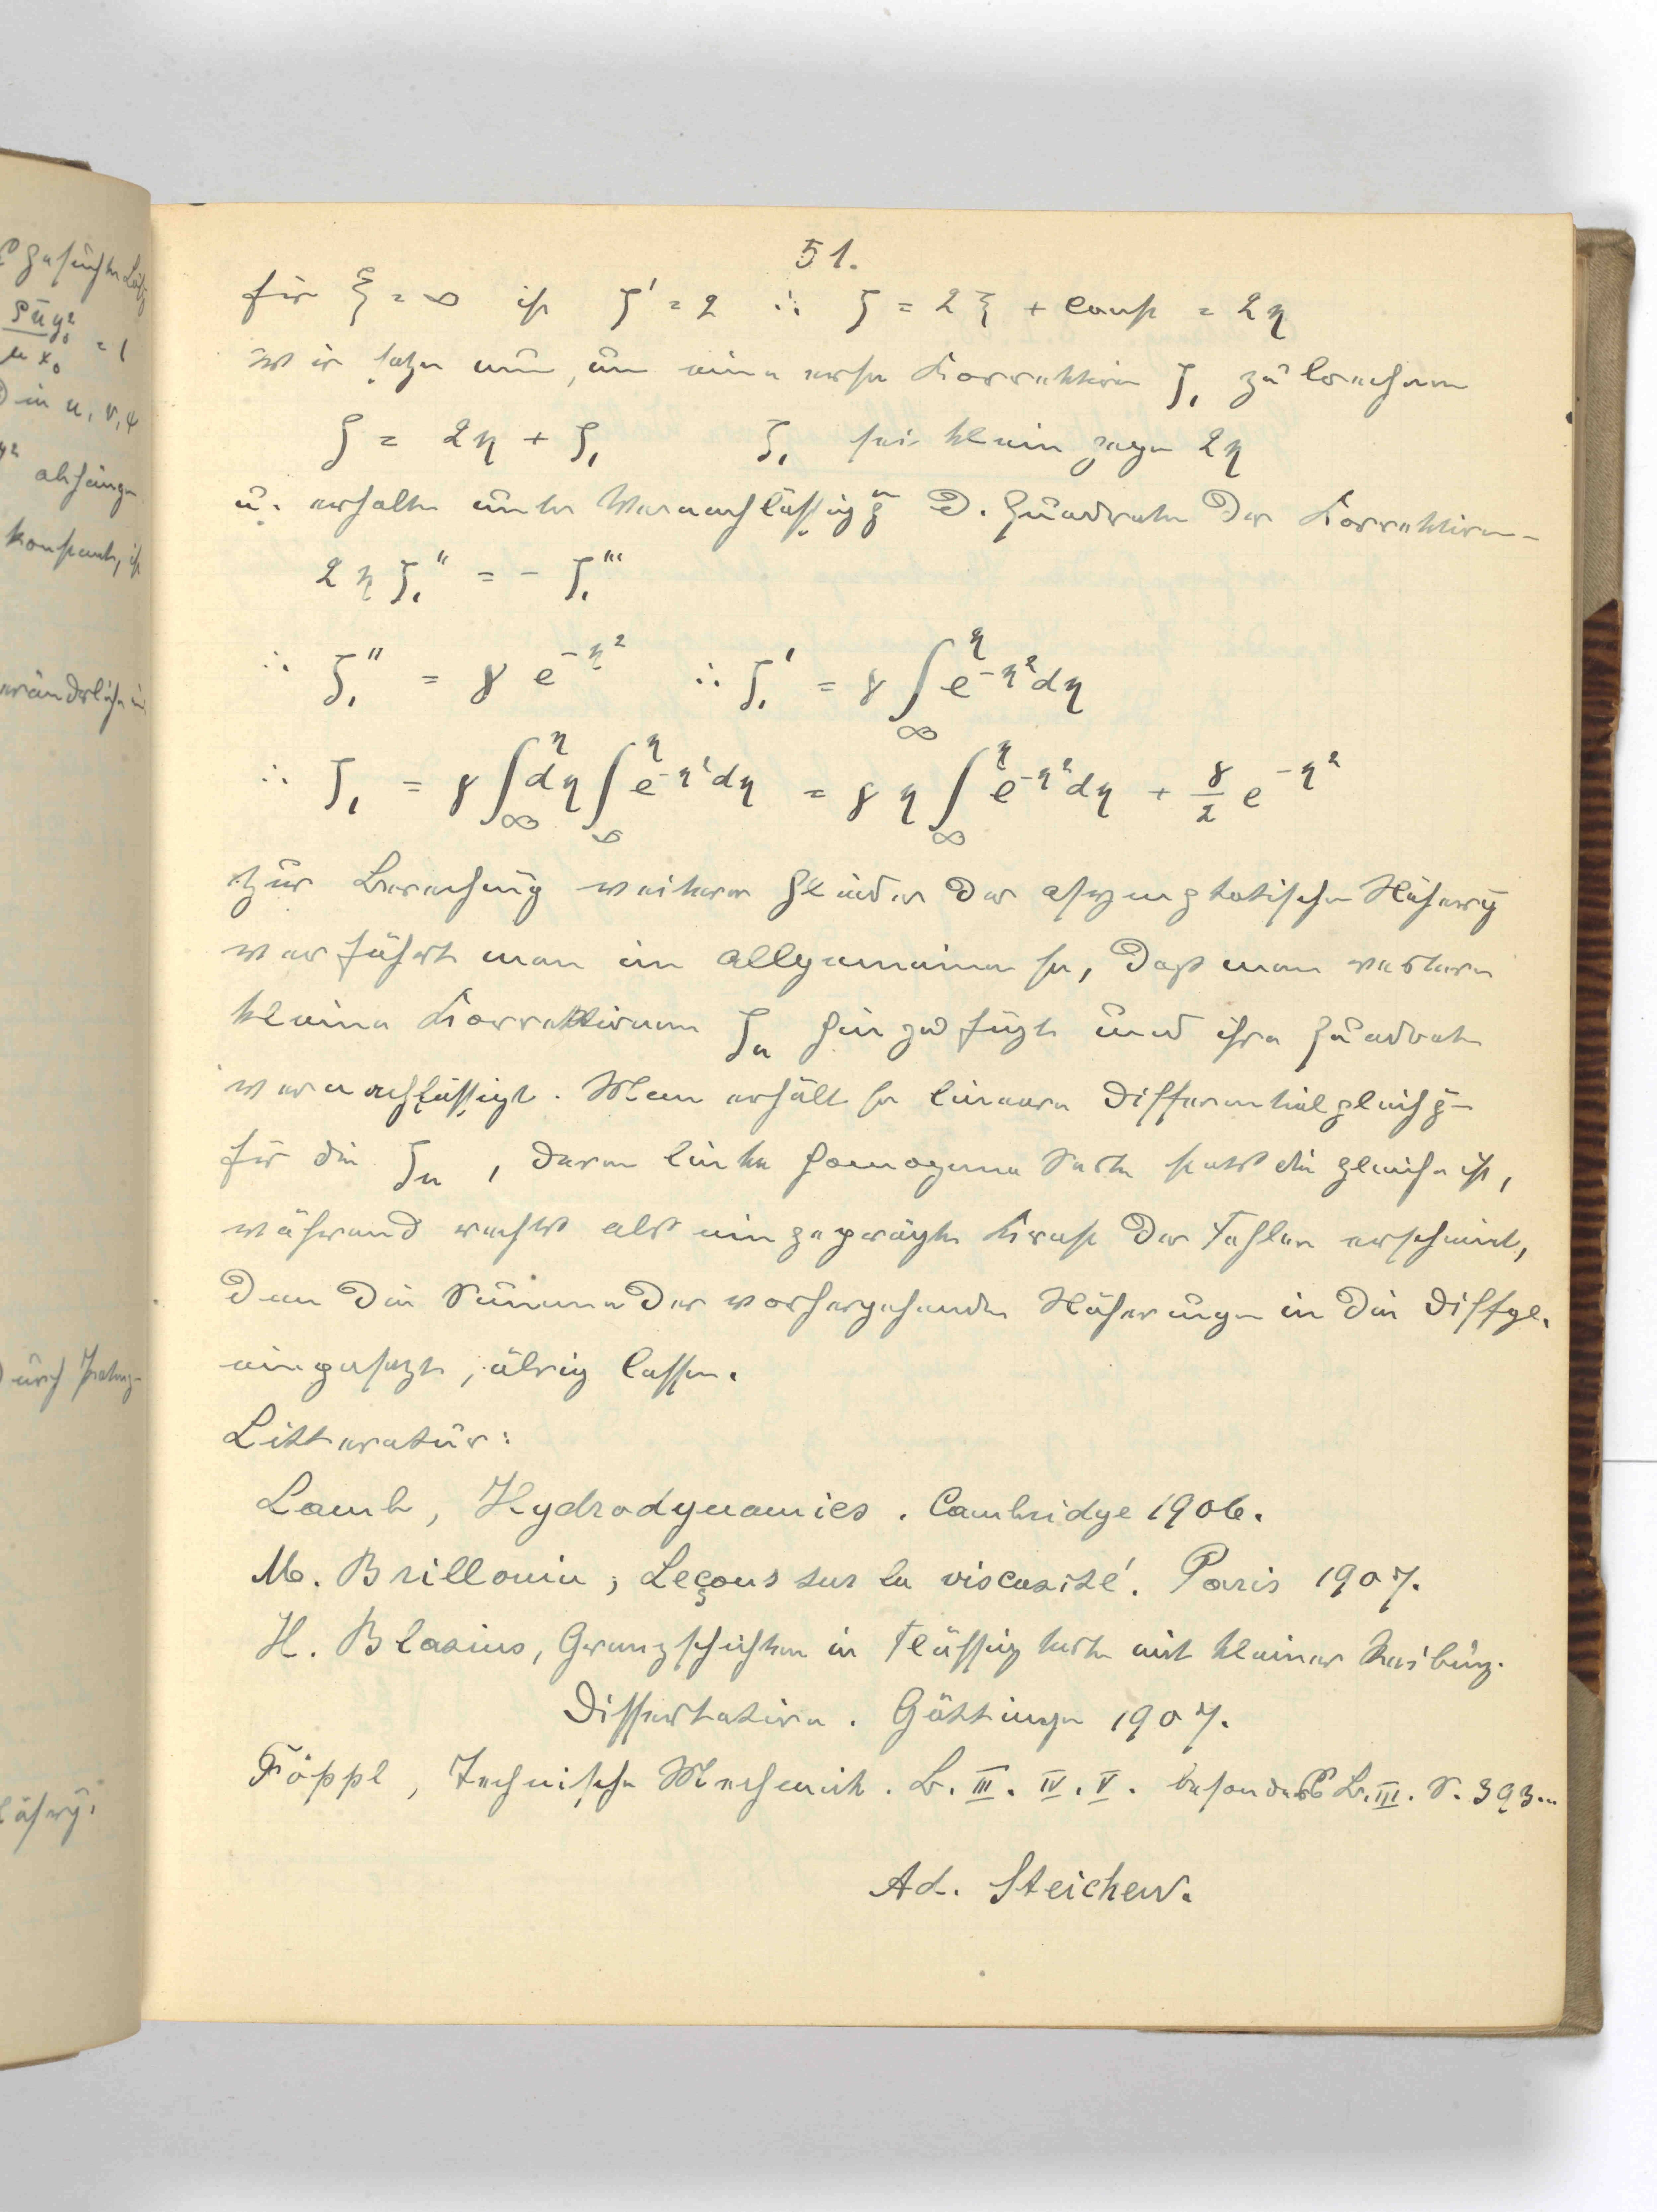 51.
für ξ = ∞ ist ζ' = 2 ∴ ζ = 2ξ + const = 2η
wir setzen nun, um eine erste Korrektion ζ₁ zu berechnen
ζ = 2η + ζ₁ ζ₁ sei klein gegen 2η
u. erhalten unter Vernachlässigg d. Quadrate der Korrektionen
2ηζ₁'' = - ζ₁'''
∴ ζ₁'' = γ e^{-η²} ∴ ζ₁' = γ ∫_∞^η e^{-η²} dη
∴ ζ₁ = γ ∫_∞^η dη ∫_∞^η e^{-η²} dη = γ η ∫_∞^η e^{-η²} dη + γ/2 e^{-η²}
Zur Berechnung weiterer Glieder der asymptotischen Näherung
verfährt man im allgemeinen so, daß man weitere
kleine Korrektionen ζₙ hinzufügt und ihre Quadrate
vernachlässigt. Man erhält so lineare Differentialgleichg–
für die ζₙ, deren linke homogene Seite stets die gleiche ist,
während rechts als eingeprägte Kraft der Fehler erscheint,
den die Summe der vorhergehenden Näherungen in die Diffgl.
eingesetzt, übrig lassen.
Litteratur:
Lamb, Hydrodynamics. Cambridge 1906.
M. Brillouin, Leçons sur la viscosité. Paris 1907.
H. Blasius, Grenzschichten in Flüssigkeiten mit kleiner Reibung.
Dissertation. Göttingen 1907.
Föppl, Technische Mechanik. B. III. IV. V. besonders B. III. S. 393..
Ad. Steichen.